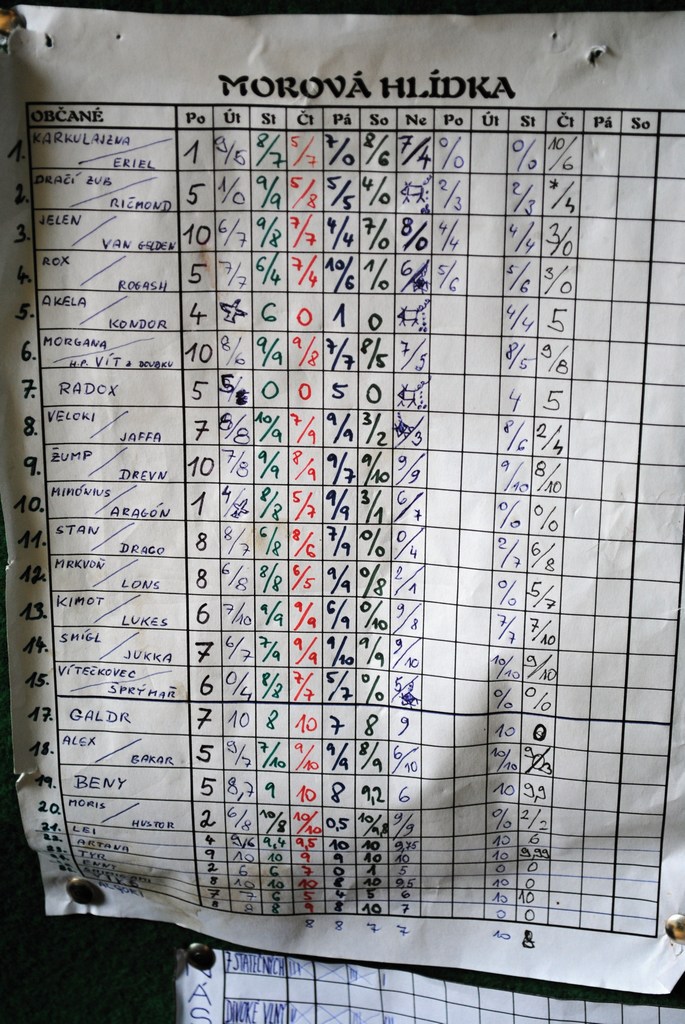 MOROVÁ HLÍDKA
OBČANÉ Po Út St Čt Pá So Ne Po Út St Čt Pá So
1. KARKULAJZNA / ERIEL 1 9/5 8/7 5/7 7/0 8/6 7/4 0/0 0/0 10/6
2. DRAČÍ ZUB / RIČMOND 5 1/0 9/9 5/8 5/5 4/0 2/3 2/3 */4
3. JELEN / VAN GELDEN 10 6/7 9/8 7/7 4/4 7/0 8/0 4/4 4/4 3/0
4. ROX / ROGASH 5 7/7 6/4 7/4 10/6 1/0 6/ 5/6 5/6 3/0
5. AKELA / KONDOR 4 6 0 1 0 4/4 5
6. MORGANA / H.P. VÍT z DOUBKU 10 8/6 9/9 9/8 7/7 8/5 7/5 8/5 9/8
7. RADOX 5 5/ 0 0 5 0 4 5
8. VELOKI / JAFFA 7 8/8 10/9 7/9 9/9 3/2 /3 8/6 2/4
9. ŽUMP / DREVN 10 7/8 9/9 8/9 9/7 9/10 9/9 9/10 8/10
10. MIMÓNIUS / ARAGÓN 1 4/ 8/8 5/7 9/9 3/1 6/7 0/0 0/0
11. STAN / DRACO 8 8/7 6/8 8/6 7/9 0/0 0/4 2/7 6/8
12. MRKVOŇ / LONS 8 6/8 8/8 6/5 9/9 0/8 2/1 0/0 5/7
13. KIMOT / LUKES 6 7/10 9/9 9/9 6/9 0/10 9/8 7/7 7/10
14. SMÍGL / JUKKA 7 6/7 7/9 9/9 9/10 9/9 9/10 10/10 9/10
15. VÍTEČKOVEC / ŠPRÝMAŘ 6 0/4 8/8 7/7 5/7 0/0 5/ 0/0 0/0
17. GALDR 7 10 8 10 7 8 9 10 0
18. ALEX / BAKAR 5 9/7 7/10 9/10 9/9 8/9 6/10 10/10
19. BENY 5 8,7 9 10 8 9,2 6 10 9,9
20. MORIS / HUSTOR 2 6/8 10/8 10/10 0,5 10/9,8 9/9 0/0 2/2
21. LEI
22. ARTANA 4 9/6 9,4 9,5 10 10 9,75 10 6
23. TYR 9 10 10 9 9 10 10 10 9,99
2 6 6 7 0 1 5 0 0
8 10 10 10 8 10 9,5 10 0
7 7 6 5 4 5 6 10 10
8 8 8 9 8 10 7 0 0
8 8 7 7 10 8
7 STATEČNÝCH
DIVOKÉ VLNY